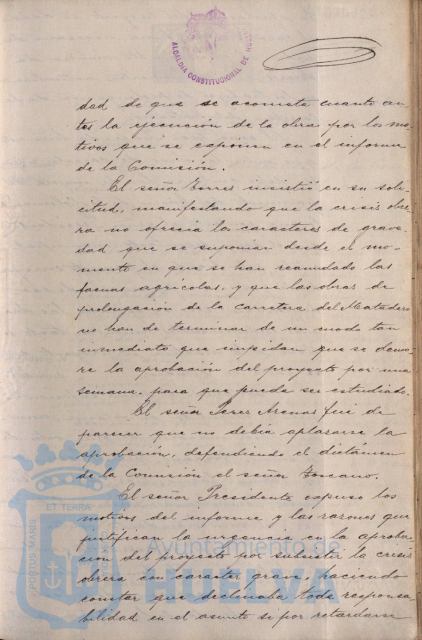 ALCALDIA CONSTITUCIONAL DE HUE
dad de que se acometa cuanto an-
tes la ejecución de la obra por los mo-
tivos que se exponen en el informe
de la Comisión.
El señor Torres insistió en su soli-
citud, manifestando que la crisis obre-
ra no ofrecia los caracteres de grave-
dad que se suponian desde el mo-
mento en que se han reanudado las
faenas agrícolas, y que las obras de
prolongación de la carretera del Matadero
no han de terminar de un modo tan
inmediato que impidan que se demo-
re la aprobación del proyecto por una
semana, para que pueda ser estudiado.
El señor Perez Arenas fué de
parecer que no debia aplazarse la
aprobación, defendiendo el dictámen
de la Comisión el señor Toscano.
El señor Presidente expuso los
motivos del informe y las razones que
justifican la urgencia en la aproba-
cion del proyecto por subsistir la crisis
obrera con caracter grave, haciendo
constar que declinaba toda responsa-
bilidad en el asunto si por retardarse
ET TERRA
PORTUS MARIS
Ayuntamiento de
HUELVA